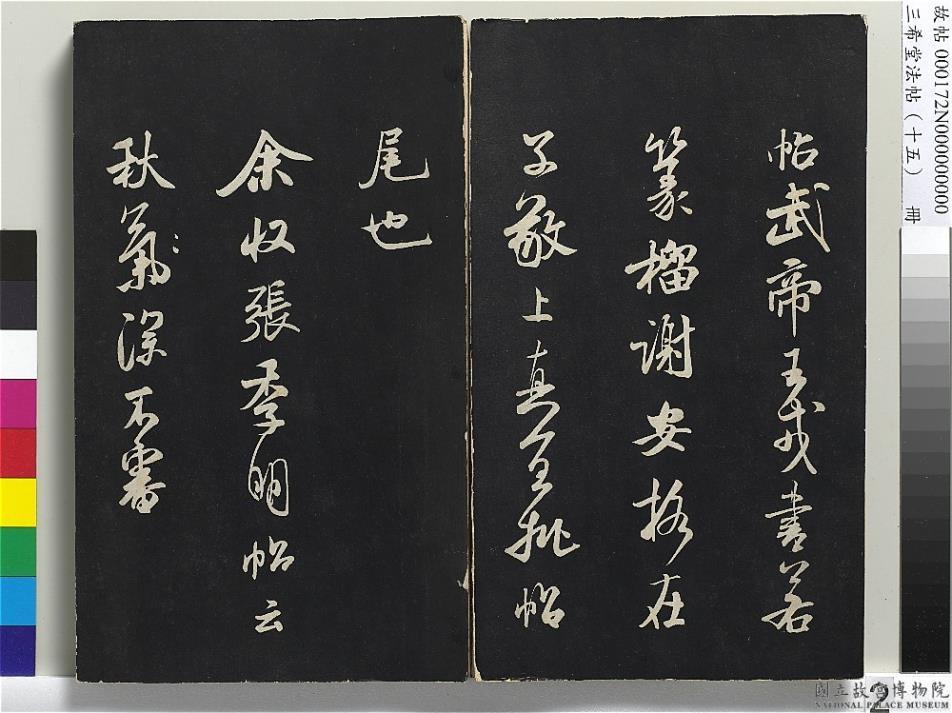 帖武帝王戎書若
篆籀謝安格在
子敬上真宜批帖
尾也
余收張季明帖云
秋氣深不審
故帖 000172N000000000
三希堂法帖（十五） 冊
2
國立故宮博物院
NATIONAL PALACE MUSEUM